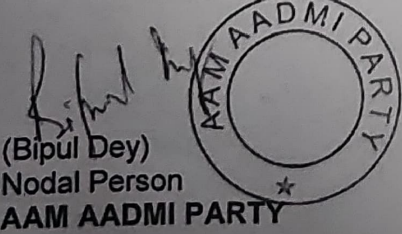 AAM AADMI PARTY
(Bipul Dey)
Nodal Person
AAM AADMI PARTY